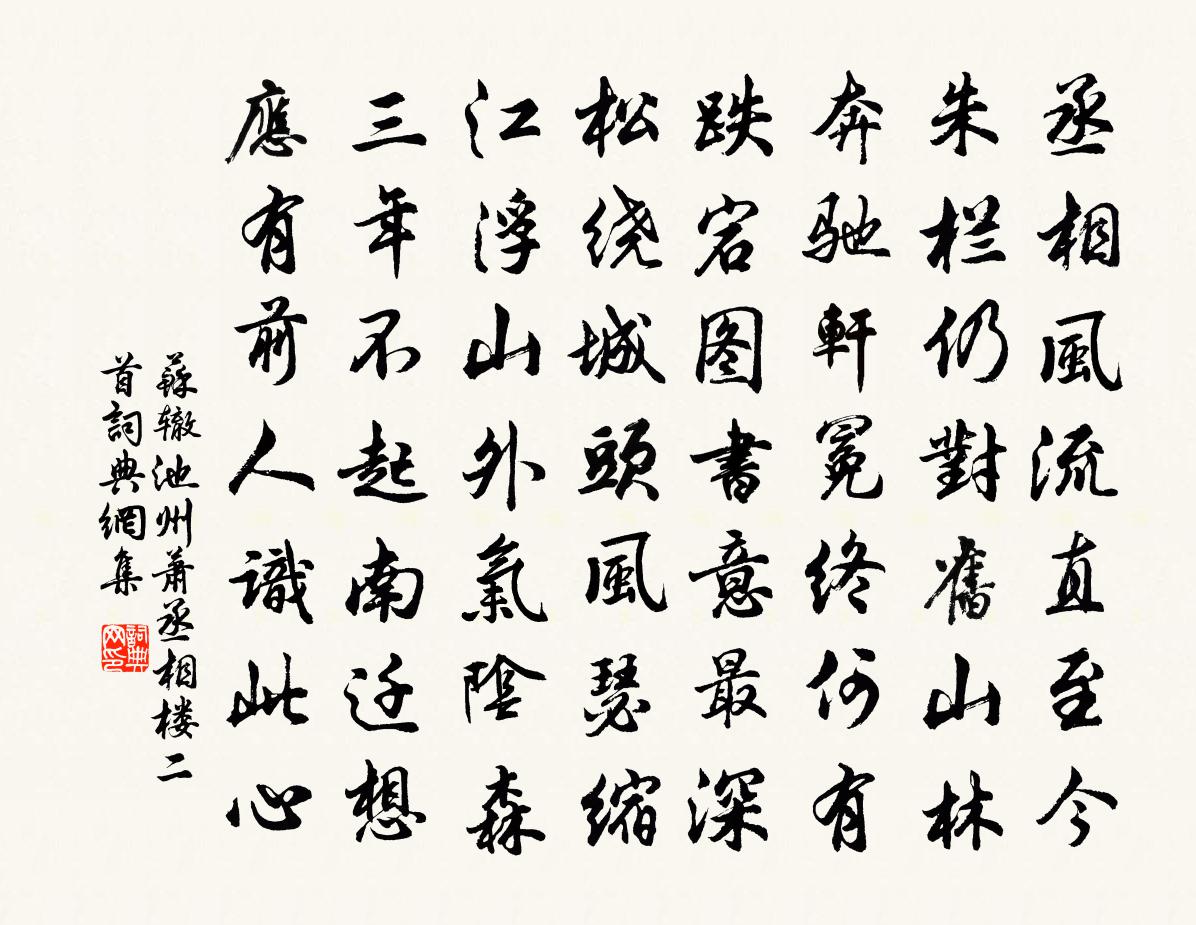 丞相風流直至今
朱栏仍對舊山林
奔驰軒冕终何有
跌宕图書意最深
松绕城頭風瑟缩
江浮山外氣陰森
三年不起南迁想
應有前人識此心
蘇辙池州萧丞相楼二
首詞典網集
詞典网印